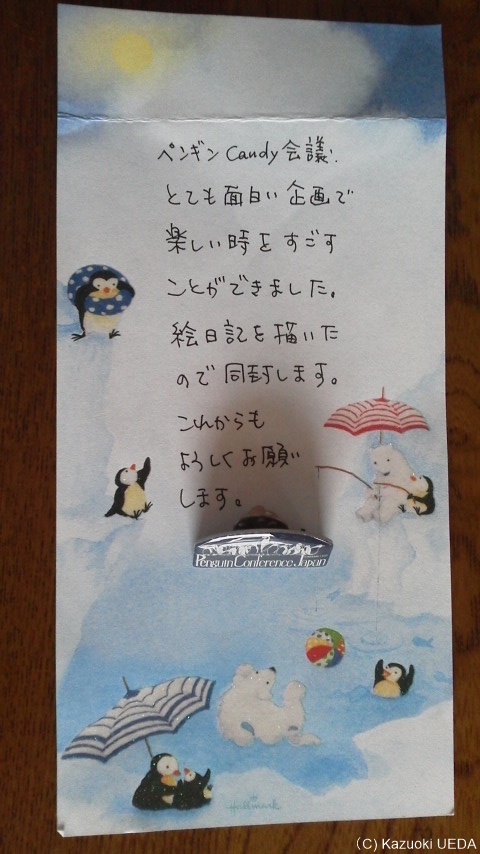 ペンギンCandy会議.
とても面白い企画で
楽しい時をすごす
ことができました。
絵日記を描いた
ので同封します。
これからも
よろしくお願い
します。
Penguin Conference Japan
Hallmark
(C) Kazuoki UEDA